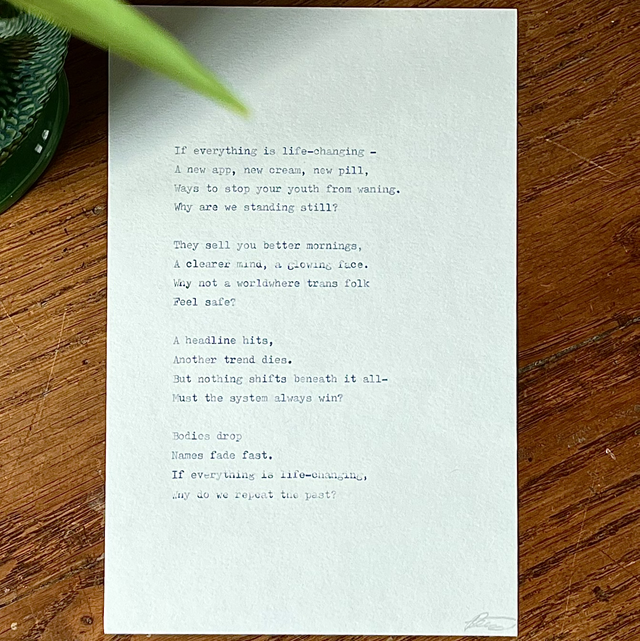 If everything is life-changing -
A new app, new cream, new pill,
Ways to stop your youth from waning.
Why are we standing still?
They sell you better mornings,
A clearer mind, a glowing face.
Why not a worldwhere trans folk
Feel safe?
A headline hits,
Another trend dies.
But nothing shifts beneath it all-
Must the system always win?
Bodies drop
Names fade fast.
If everything is life-changing,
Why do we repeat the past?